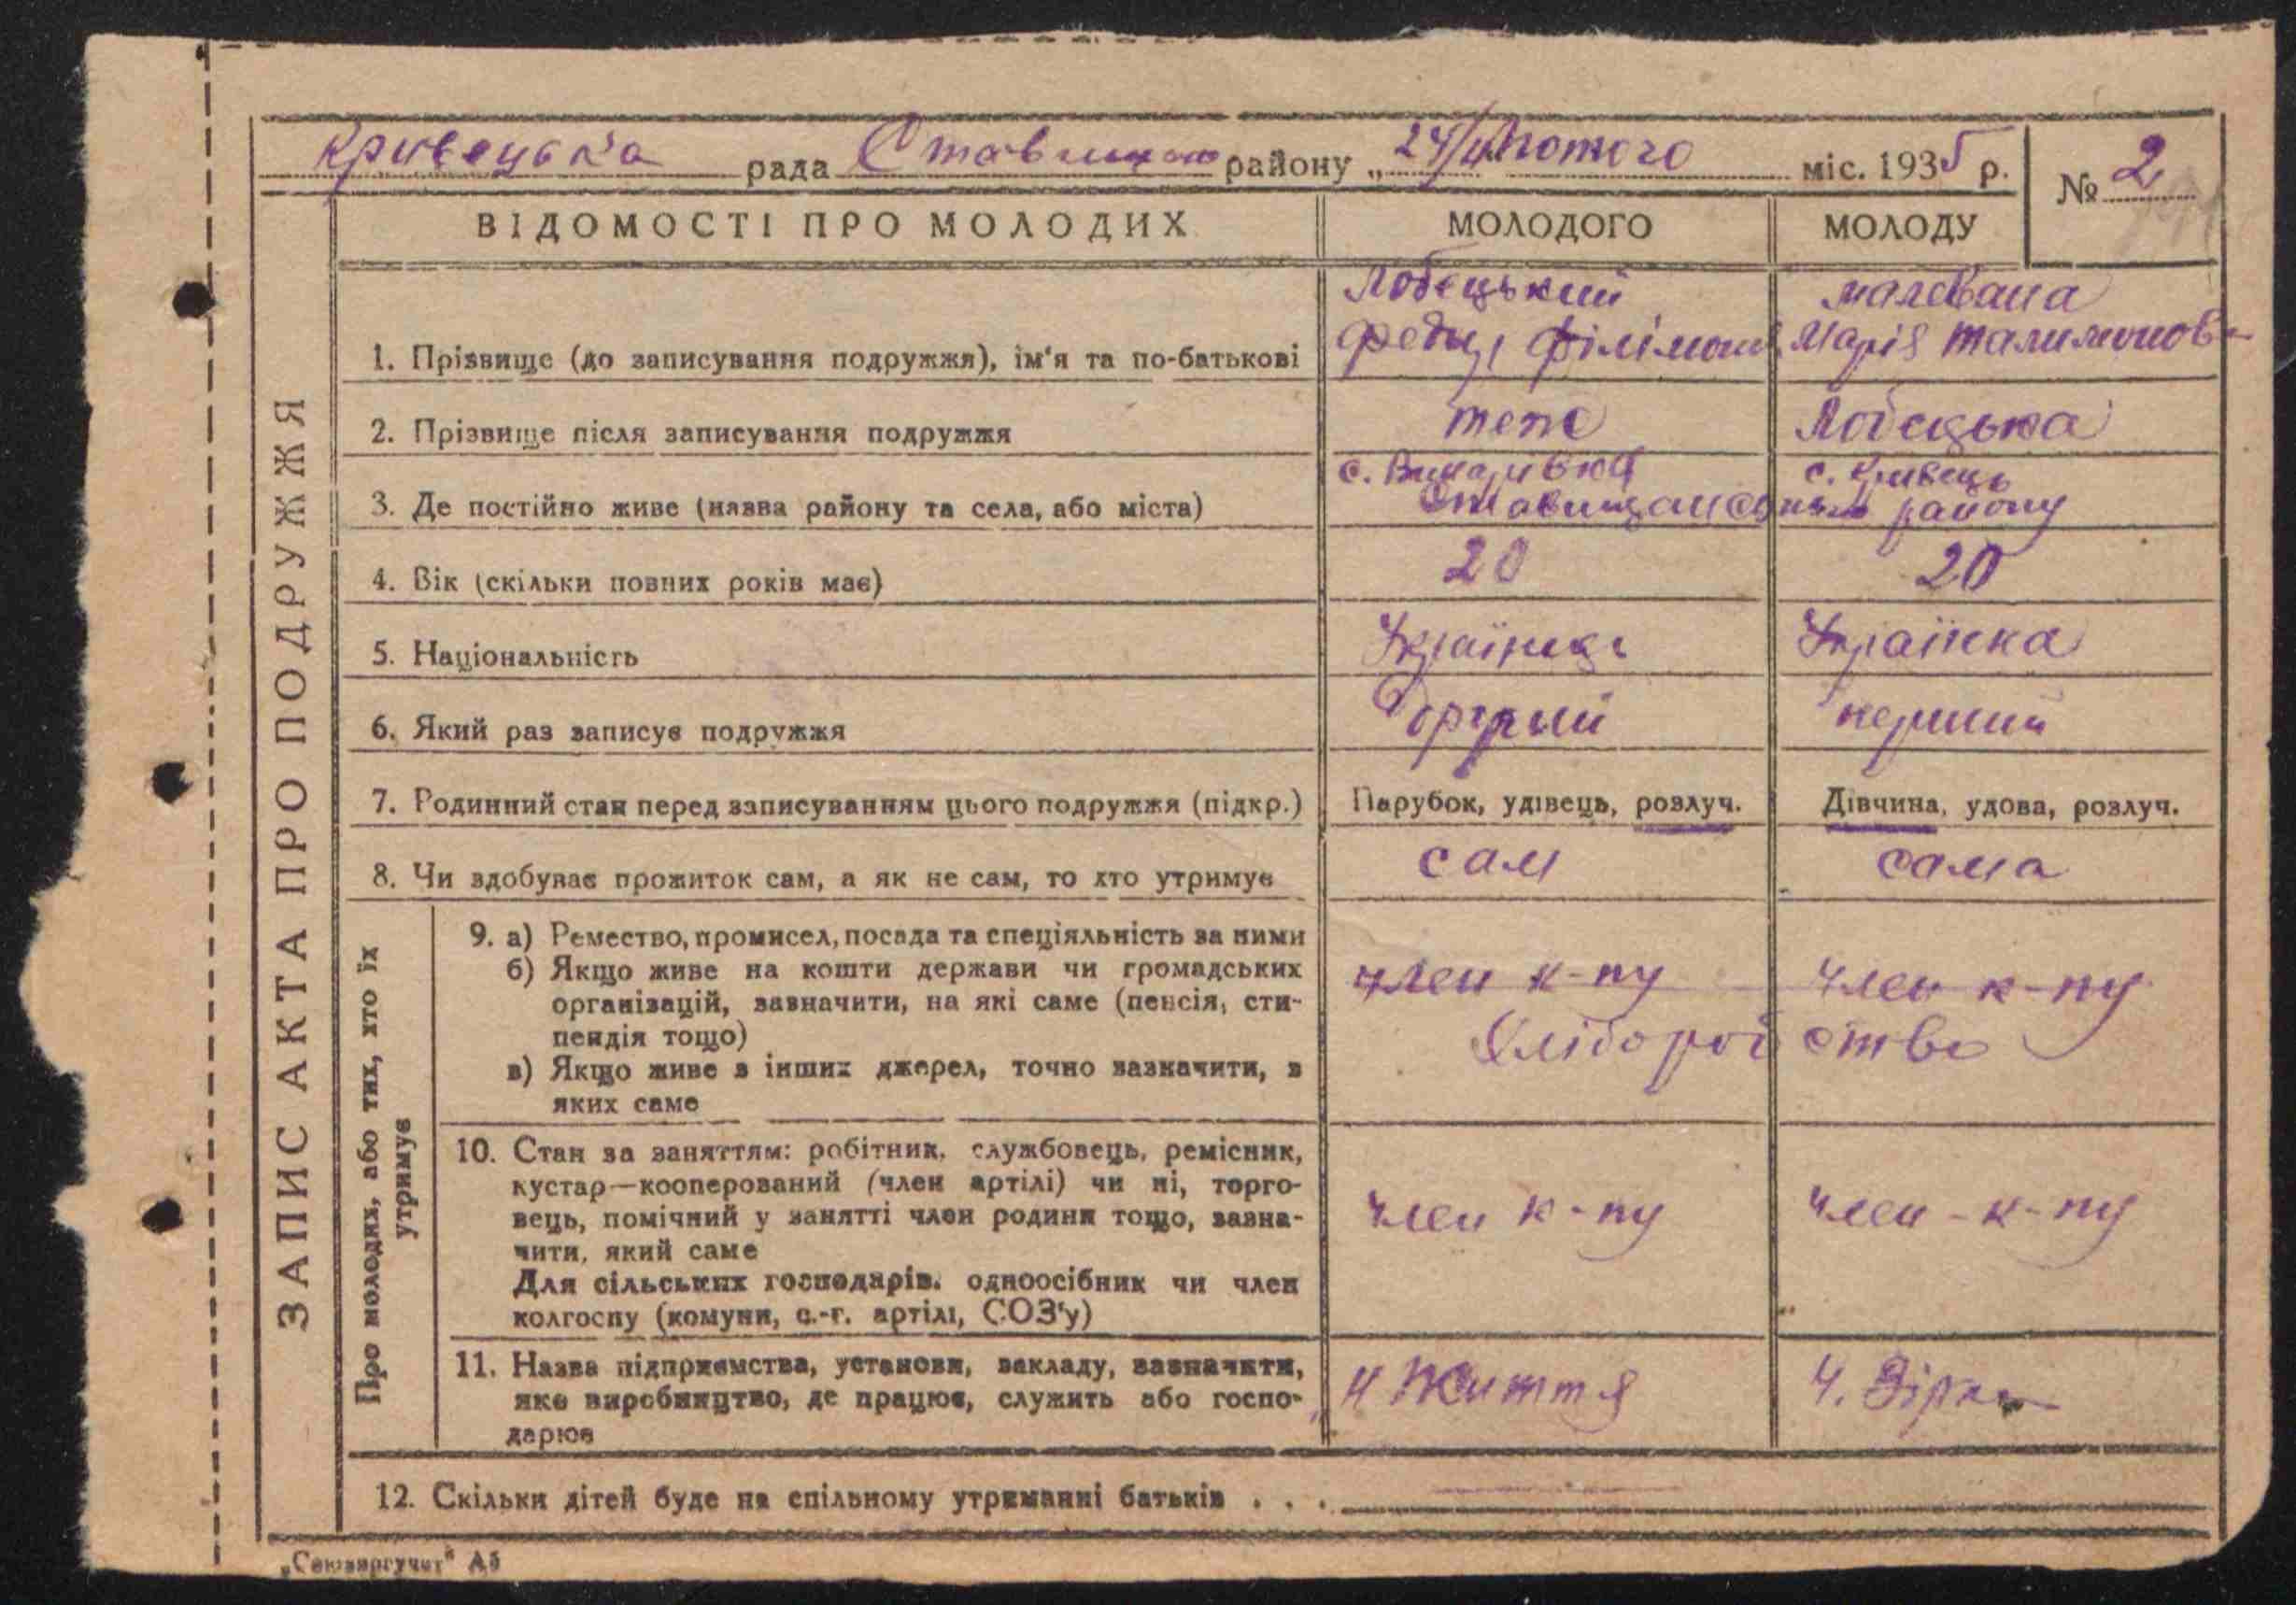 Кривецька рада Ставищан району „ 24/II Лютого міс. 1935 р.
№ 2
ЗАПИС АКТА ПРО ПОДРУЖЖЯ
ВІДОМОСТІ ПРО МОЛОДИХ МОЛОДОГО МОЛОДУ
Лобецький малевана
1. Прізвище (до записування подружжя), ім'я та по-батькові Федір Філімон Марія Талимонов
2. Прізвище після записування подружжя теж Лобецька
с. Винарівка с. Кривець
3. Де постійно живе (назва району та села, або міста) Ставищанського району
4. Вік (скільки повних років має) 20 20
5. Національність Українець Українка
6. Який раз записує подружжя Другий перший
7. Родинний стан перед записуванням цього подружжя (підкр.) Парубок, удівець, розлуч. Дівчина, удова, розлуч.
8. Чи здобуває прожиток сам, а як не сам, то хто утримує сам сама
Про молодих, або тих, хто їх
утримує
9. а) Ремество, промисел, посада та спеціяльність за ними
б) Якщо живе на кошти держави чи громадських
організацій, зазначити, на які саме (пенсія, сти-
пендія тощо)
в) Якщо живе з інших джерел, точно зазначити, з
яких саме
член к-пу член к-пу
Хліборобство
10. Стан за заняттям: робітник, службовець, ремісник,
кустар—кооперований (член артілі) чи ні, торго-
вець, помічний у занятті член родини тощо, зазна-
чити, який саме
Для сільських господарів: одноосібник чи член
колгоспу (комуни, с.-г. артілі, СОЗ'у)
член к-пу член-к-пу
11. Назва підприємства, установи, закладу, зазначити,
яке виробництво, де працює, служить або госпо-
дарює
„ Н Життя Ч. Зірка
12. Скільки дітей буде на спільному утриманні батьків . . .
„Союзоргучет" А5